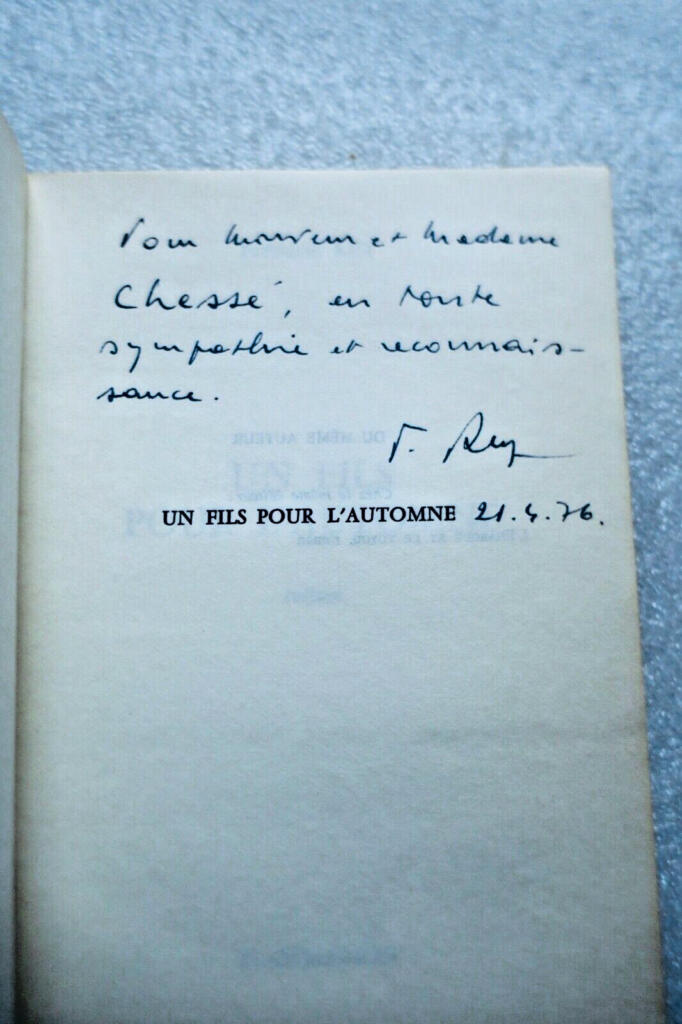 Pour Monsieur et Madame
Chessé, en toute
sympathie et reconnais-
sance.
P. Rey
UN FILS POUR L'AUTOMNE 21.4.76.
DU MÊME AUTEUR
UN FILS